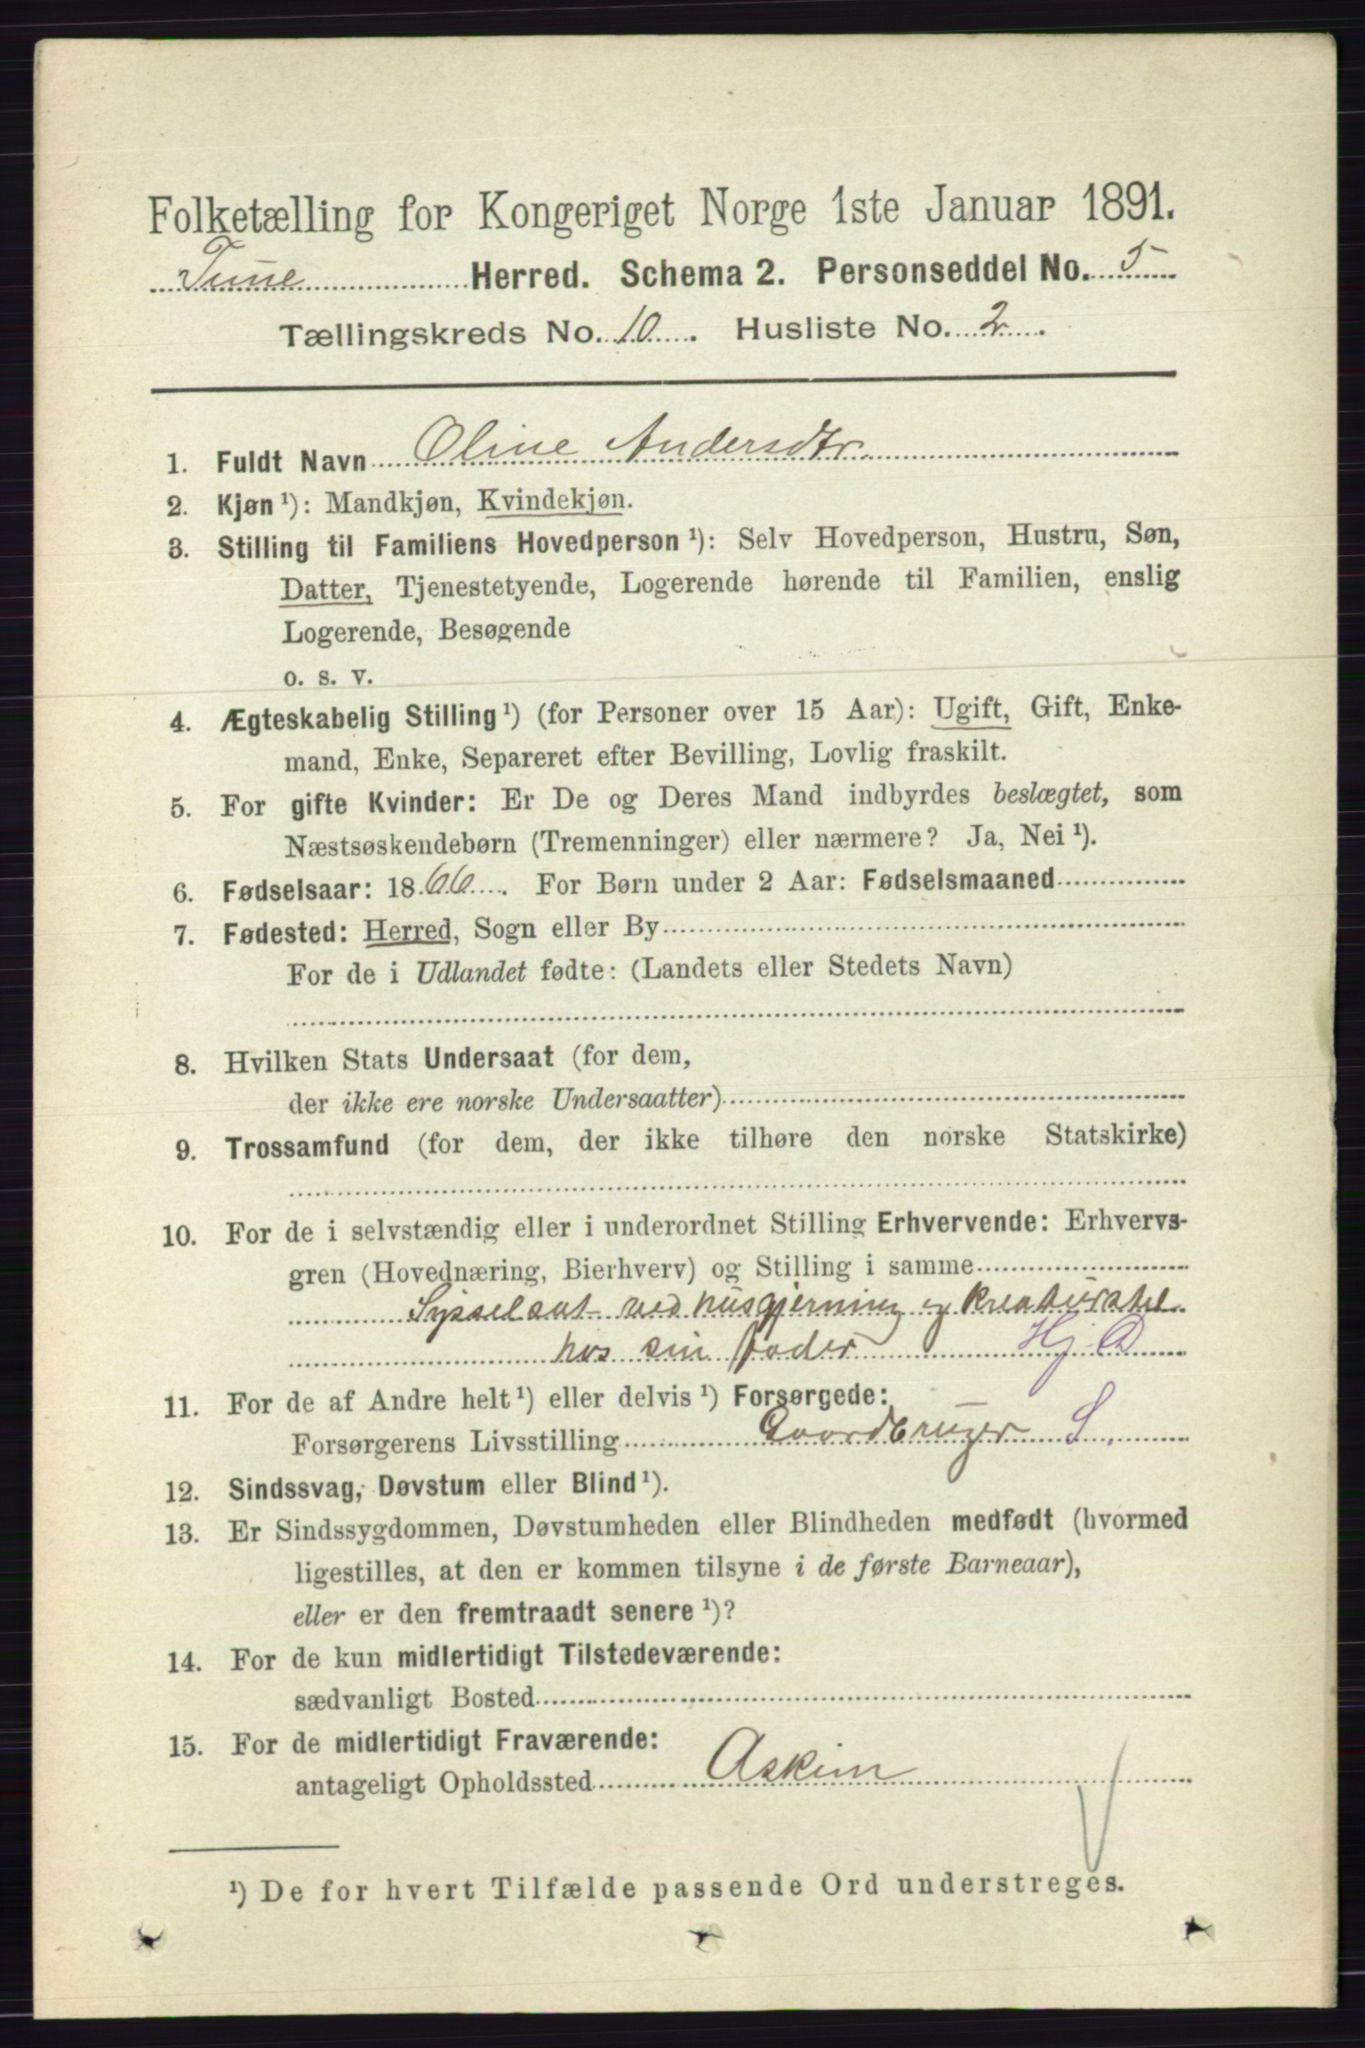 Folketælling for Kongeriget Norge 1ste Januar 1891.
Tune Herred. Schema 2. Personseddel No. 5
Tællingskreds No. 10. Husliste No. 2.
1. Fuldt Navn Oline Andersdtr.
2. Kjøn¹): Mandkjøn, Kvindekjøn.
3. Stilling til Familiens Hovedperson¹): Selv Hovedperson, Hustru, Søn,
Datter, Tjenestetyende, Logerende hørende til Familien, enslig
Logerende, Besøgende
o. s. v.
4. Ægteskabelig Stilling¹) (for Personer over 15 Aar): Ugift, Gift, Enke-
mand, Enke, Separeret efter Bevilling, Lovlig fraskilt.
5. For gifte Kvinder: Er De og Deres Mand indbyrdes beslægtet, som
Næstsøskendebørn (Tremenninger) eller nærmere? Ja, Nei¹).
6. Fødselsaar: 1866. For Børn under 2 Aar: Fødselsmaaned
7. Fødested: Herred, Sogn eller By
For de i Udlandet fødte: (Landets eller Stedets Navn)
8. Hvilken Stats Undersaat (for dem,
der ikke ere norske Undersaatter)
9. Trossamfund (for dem, der ikke tilhøre den norske Statskirke)
10. For de i selvstændig eller i underordnet Stilling Erhvervende: Erhvervs-
gren (Hovednæring, Bierhverv) og Stilling i samme
Sysselsat ved husgjerning og Kreaturstel
hos sin fader Hj. D
11. For de af Andre helt¹) eller delvis¹) Forsørgede:
Forsørgerens Livsstilling Gaardbruger S.
12. Sindssvag, Døvstum eller Blind¹).
13. Er Sindssygdommen, Døvstumheden eller Blindheden medfødt (hvormed
ligestilles, at den er kommen tilsyne i de første Barneaar),
eller er den fremtraadt senere¹)?
14. For de kun midlertidigt Tilstedeværende:
sædvanligt Bosted
15. For de midlertidigt Fraværende:
antageligt Opholdssted Askim
¹) De for hvert Tilfælde passende Ord understreges.